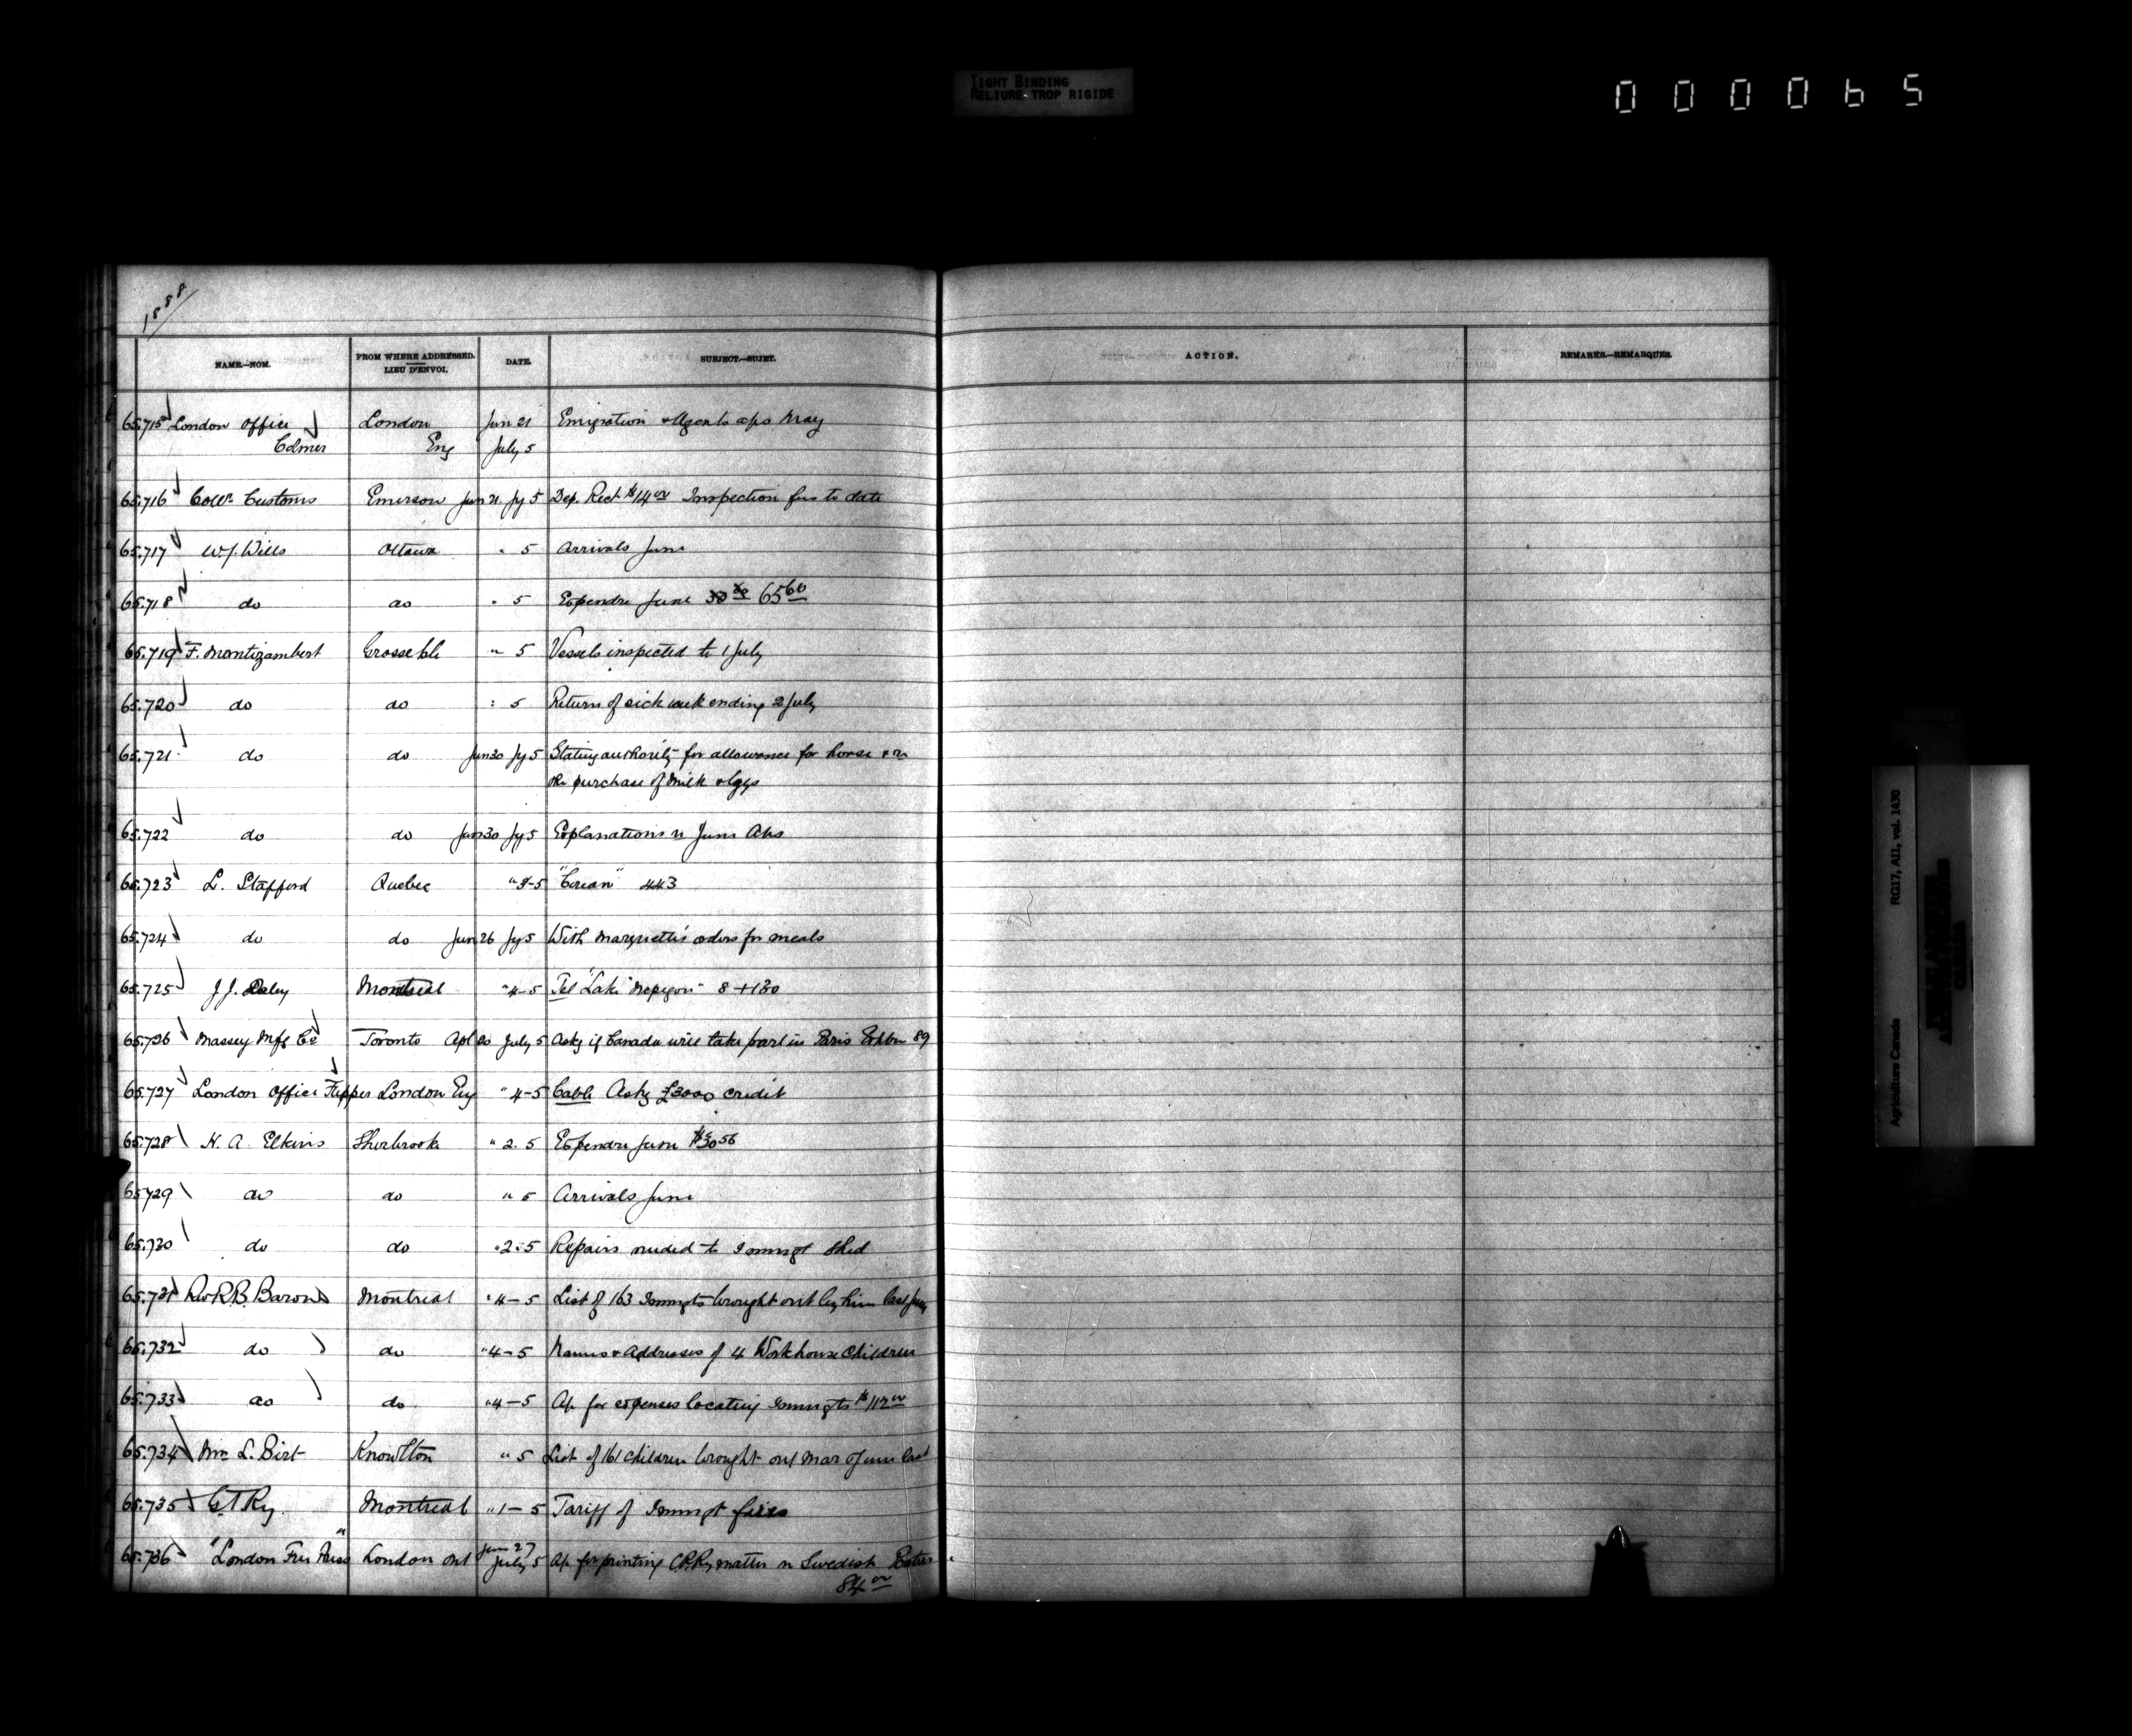 TIGHT BINDING
RELIURE TROP RIGIDE
000065
1888
NAME.—NOM. FROM WHERE ADDRESSED. LIEU D'ENVOI. DATE. SUBJECT.—SUJET. ACTION. REMARKS.—REMARQUES.
65.715 London Office London Jun 21 Emigration & Agents a/cs May
Colmer Eng July 5
65.716 Collr. Customs Emerson Jun 21. Jy 5 Dep. Rect $14.00 Inspection fees to date
65.717 W.J. Wills Ottawa " 5 Arrivals June
65.718 do do " 5 Expendre June 65.60
65.719 F. Montizambert Grosse Isle " 5 Vessels inspected to 1 July
65.720 do do " 5 Return of sick week ending 2 July
65.721 do do Jun 30 Jy 5 Stating authority for allowance for horse & re
the purchase of milk & eggs
65.722 do do Jun 30 Jy 5 Explanations re June A/cs
65.723 L. Stafford Quebec "Corean" 443
65.724 do do Jun 26 Jy 5 With Marquette's orders for meals
65.725 J.J. Daley Montreal " 4-5 Tel "Lake Nepigon" 8 + 130
65.726 Massey Mfg Co Toronto Apl 20 July 5 Asks if Canada will take part in Paris Exhbn 89
65.727 London Office London Eng " 4-5 Cable Asks £3000 credit
65.728 H. A. Elkins Sherbrooke " 2. 5 Expendre June
65.729 do do " 5 Arrivals June
65.730 do do " 2. 5 Repairs needed to Immigt Shed
65.731 Montreal " 4-5 List of 163 Immgts brought out by him last
65.732 do do " 4-5 Names & Addresses of 4 Workhouse Children
65.733 do do " 4-5 A/c for expenses locating Immgts $112.00
65.734 Mrs L. Birt Knowlton " 5 List of 161 children brought out Mar & June last
65.735 G.T. Ry. Montreal " 1-5 Tariff of Immgt fares
65.736 "London Free Press" London Ont Jun 27 July 5 A/c for printing C.P.Ry matter in Swedish
84.00
Agriculture Canada RG17, AII, vol. 1430